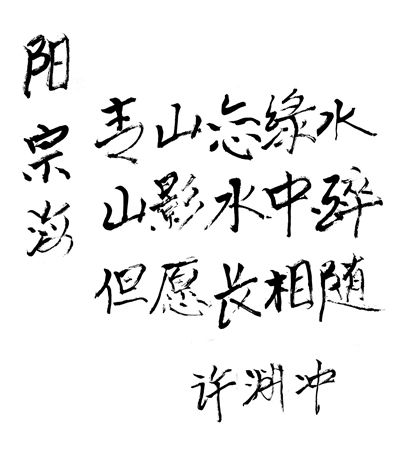 阳宗海
青山恋緑水
山影水中醉
但愿长相随
许渊冲